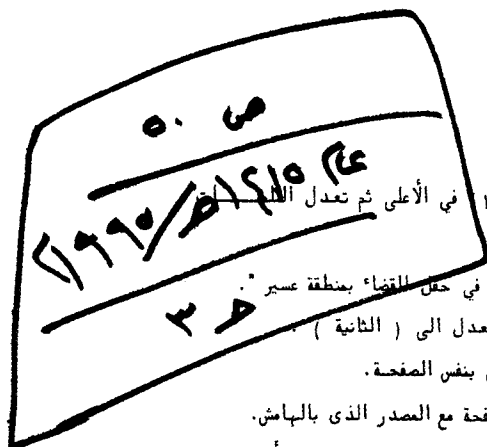 ص ٥٠
عام ١٤١٥هـ/١٩٩٥م
ط ٣
١ في الأعلى ثم تعدل
في حقل القضاء بمنطقة عسير ".
تعدل الى ( الثانية ) .
بنفس الصفحة.
فحة مع المصدر الذى بالهامش.